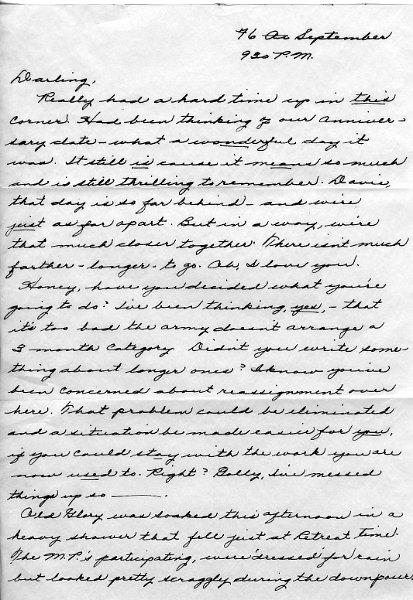 46 Au September
930 P.M.
Darling,
Really had a hard time up in this
corner. Had been thinking of our Anniver-
sary date - what a wonderful day it
was. It still is cause it means so much
and is still thrilling to remember. Davie,
that day is so far behind - and we're
just as far apart. But in a way, we're
that much closer together. There isn't much
farther - longer - to go. Oh, I love you.
Honey, have you decided what you're
going to do? I've been thinking, yes, - that
it's too bad the army doesn't arrange a
3 month category. Didn't you write some-
thing about longer ones? I know you've
been concerned about reassignment over
here. That problem could be eliminated
and a situation be made easier for you,
if you could stay with the work you are
now used to. Right? Golly, I've messed
things up so ———.
Old Glory was soaked this afternoon in a
heavy shower that fell just at Retreat time.
The M.P.'s participating, were dressed for rain
but looked pretty scraggly during the downpour